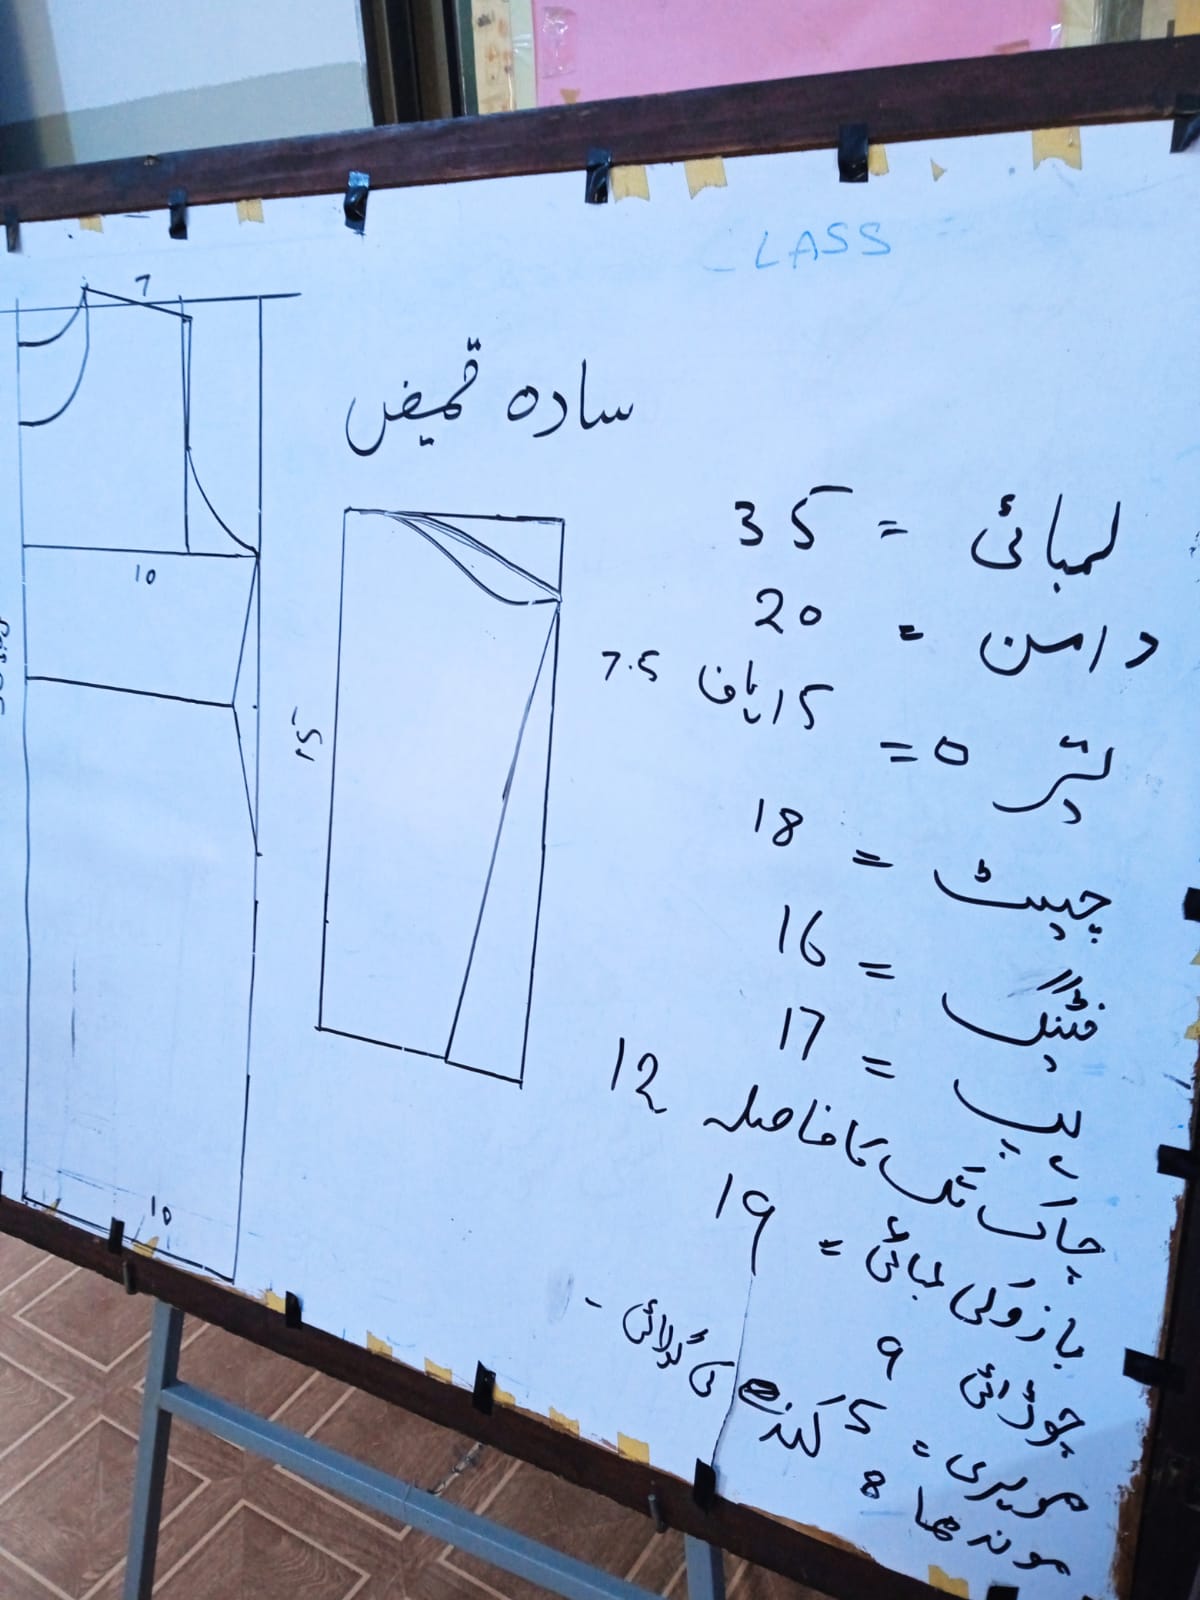 CLASS
سادہ قمیض
لمبائی = 35
دامن = 20
= 15 ہاف 7.5
چیسٹ = 18
فٹنگ = 16
ہپ = 17
چاک تک کا فاصلہ 12
بازو کی لمبائی = 19
چوڑائی 9
موہری = 5
موندھا 8 کندھے کی گولائی -
7
10
10
15